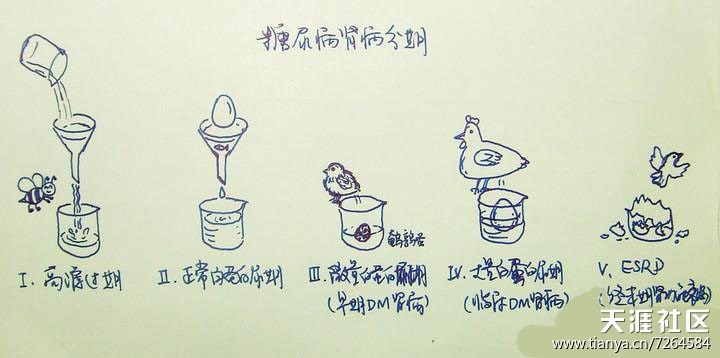 糖尿病肾病分期
鹌鹑蛋
I. 高滤过期
II. 正常白蛋白尿期
III. 微量白蛋白尿期
(早期DM肾病)
IV. 大量白蛋白尿期
(临床DM肾病)
V. ESRD
(终末期肾功能衰竭)
天涯社区
www.tianya.cn/7264584